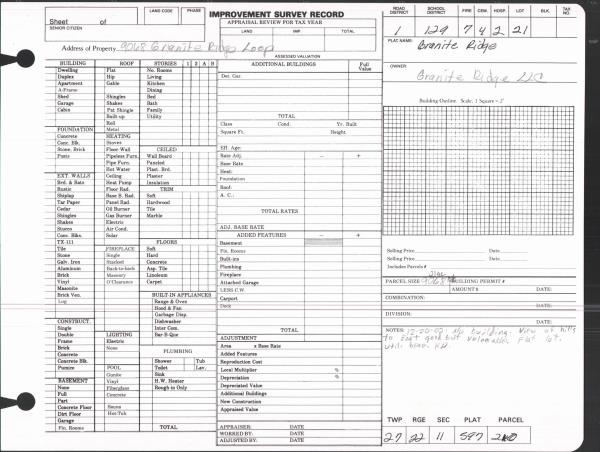 LAND CODE
PHASE
IMPROVEMENT SURVEY RECORD
Sheet of
SENIOR CITIZEN
APPRAISAL REVIEW FOR TAX YEAR
LAND IMP. TOTAL
Address of Property 9068 Granite Ridge Loop
ASSESSED VALUATION
ROAD DISTRICT SCHOOL DISTRICT FIRE CEM. HOSP. LOT BLK. TAX NO.
1 129 7 4 2 21
PLAT NAME:
Granite Ridge
OWNER:
Granite Ridge LLC
Building Outline Scale: 1 Square = 2'
BUILDING ROOF STORIES 1 2 A B
Dwelling Flat No. Rooms
Duplex Hip Living
Apartment Gable Kitchen
A-Frame Dining
Shed Shingles Bed
Garage Shakes Bath
Cabin Pat Shingle Family
Built-up Utility
Roll
FOUNDATION Metal
Concrete HEATING CEILED
Conc. Blk. Stoves
Stone, Brick Floor Wall Wall Board
Posts Pipeless Furn. Paneled
Pipe Furn. Plast. Brd.
Hot Water Plaster
EXT. WALLS Ceiling Insulation
Brd. & Bats Heat Pump TRIM
Rustic Floor Rad. Soft
Shiplap Base B. Rad. Hardwood
Tar Paper Panel Rad. Tile
Cedar Oil Burner Marble
Shingles Gas Burner
Shakes Electric
Stucco Air Cond.
Conc. Blks. Solar
TX-111 FLOORS
Tile FIREPLACE Soft
Stone Single Hard
Galv. Iron Stacked Concrete
Aluminum Back-to-back Asp. Tile
Brick Masonry Linoleum
Vinyl O'Clearance Carpet
Masonite
Brick Ven. BUILT-IN APPLIANCES
Log Range & Oven
Hood & Fan
Garbage Disp.
CONSTRUCT. Dishwasher
Single Inter Com.
Double LIGHTING Bar-B-Que
Frame Electric
Brick None
Concrete PLUMBING
Concrete Blk. Shower Tub
Pumice POOL Toilet Lav.
Gunite Sink
BASEMENT Vinyl H.W. Heater
None Fiberglass Rough-in Only
Full Concrete
Part
Concrete Floor Sauna
Dirt Floor Hot-Tub
Garage
Fin. Rooms TOTAL
ADDITIONAL BUILDINGS Full Value
Det. Gar.
TOTAL
Class Cond. Yr. Built
Square Ft. Height
Eff. Age:
Rate Adj. − +
Base Rate
Heat:
Foundation
Roof:
A. C.:
TOTAL RATES
ADJ. BASE RATE
ADDED FEATURES − +
Basement
Fin. Rooms
Built-ins
Plumbing
Fireplace
Attached Garage
LESS C.W.
Carport
Deck
TOTAL
ADJUSTMENT
Area x Base Rate
Added Features
Reproduction Cost
Local Multiplier %
Depreciation %
Depreciated Value
Additional Buildings
New Construction
Appraised Value
APPRAISER: DATE
WORKED BY: DATE
ADJUSTED BY: DATE
Selling Price Date
Selling Price Date
Includes Parcels #
PARCEL SIZE 9068 BUILDING PERMIT #
AMOUNT $ DATE:
COMBINATION:
DATE:
DIVISION:
DATE:
NOTES: No building. View of hills
to East good but Flat lot.
TWP RGE SEC PLAT PARCEL
27 22 11 597 210